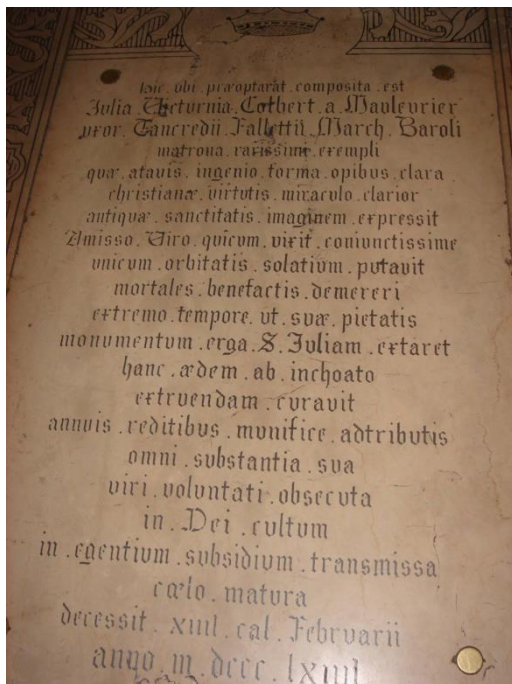 hic . vbi . præoptarat . composita . est
Julia . Victurnia . Colbert . a . Maulevrier
vxor . Tancredii . Fallettii . March . Baroli
matrona . rarissimi . exempli
quæ . atavis . ingenio . forma . opibus . clara
christianæ . virtvtis . miracvlo . clarior
antiquæ . sanctitatis . imaginem . expressit
Amisso . Viro . quicvm . vixit . conivnctissime
vnicvm . orbitatis . solativm . pvtavit
mortales . benefactis . demereri
extremo . tempore . vt . svæ . pietatis
monvmentvm . erga . S . Ivliam . extaret
hanc . ædem . ab . inchoato
extrvendam . cvravit
annvis . reditibvs . mvnifice . adtribvtis
omni . svbstantia . sva
viri . volvntati . obsecvta
in . Dei . cvltvm
in . egentivm . svbsidivm . transmissa
cælo . matvra
decessit . xiiii . cal . Febrvarii
anno . m . dccc . lxiiii